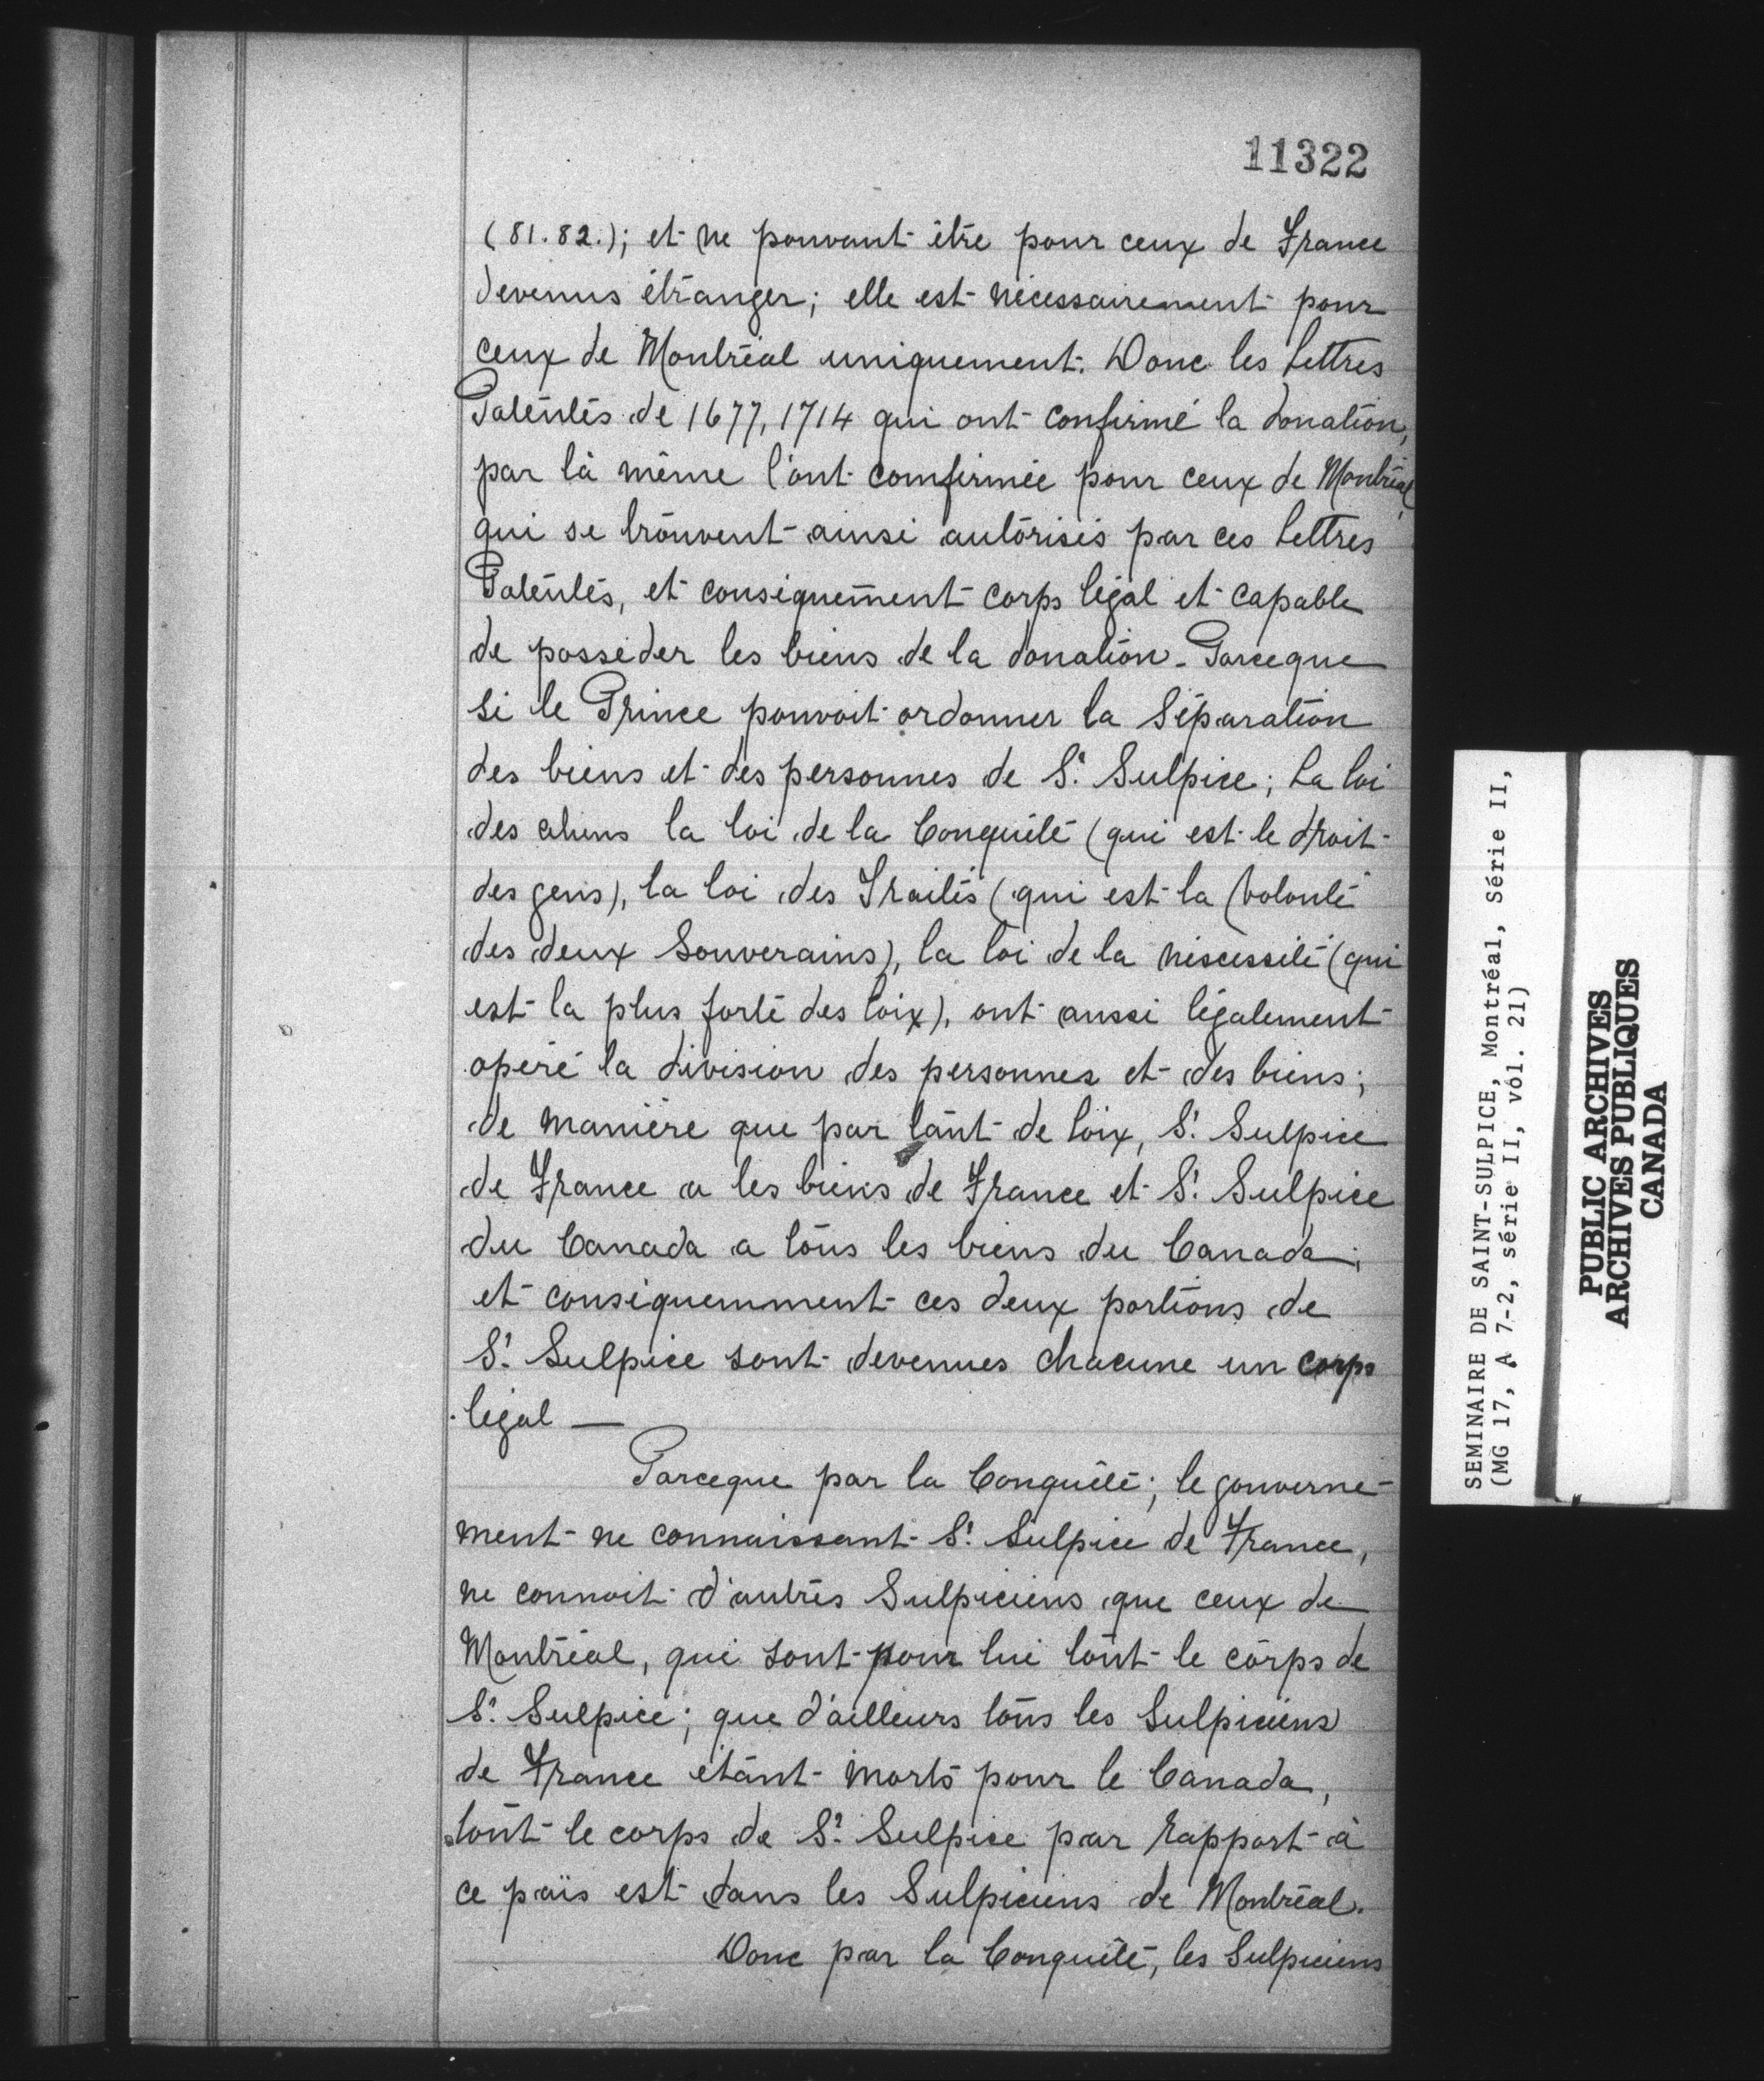 11322
(81.82.); et ne pouvant être pour ceux de France
devenus étranger; elle est nécessairement pour
ceux de Montréal uniquement. Donc les Lettres
Patentes de 1677, 1714 qui ont confirmé la donation,
par là même l'ont comfirmée pour ceux de Montréal,
qui se trouvent ainsi autorisés par ces Lettres
Patentes, et conséquemment corps légal et capable
de posséder les biens de la donation - Parceque
si le Prince pouvoit ordonner la Séparation
des biens et des personnes de St. Sulpice; La loi
des aliens la loi de la Conquête (qui est le droit
des gens), la loi des Traités (qui est la volonté
des deux Souverains), la loi de la nécessité (qui
est la plus forte des loix), ont aussi légalement
opéré la division des personnes et des biens;
de manière que par tant de loix, St. Sulpice
de France a les biens de France et St. Sulpice
du Canada a tous les biens du Canada;
et conséquemment ces deux portions de
St. Sulpice sont devenues chacune un corps
légal —
Parceque par la Conquête; le gouverne-
ment ne connaissant St. Sulpice de France,
ne connoit d'autres Sulpiciens que ceux de
Montréal, qui sont pour lui tout le corps de
St. Sulpice; que d'ailleurs tous les Sulpiciens
de France étant morts pour le Canada,
tout le corps de St. Sulpice par rapport à
ce païs est dans les Sulpiciens de Montréal.
Donc par la Conquête, les Sulpiciens
SEMINAIRE DE SAINT-SULPICE, Montréal, Série II,
(MG 17, A 7-2, série II, vol. 21)
PUBLIC ARCHIVES
ARCHIVES PUBLIQUES
CANADA